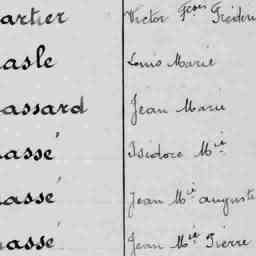 artier Victor Fçois Fréderi
asle Louis Marie
assard Jean Marie
assé Isidore Mie
assé Jean Mie auguste
assé Jean Mie Pierre